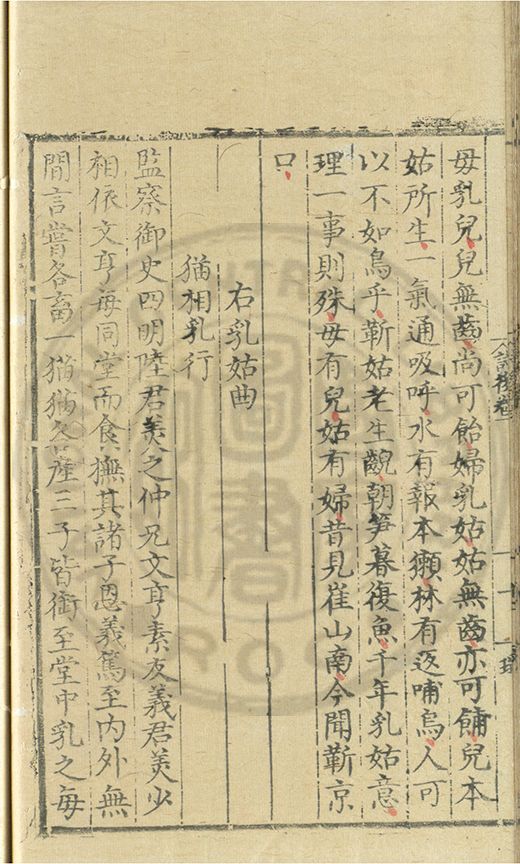 母乳兒兒無齒尚可飴婦乳姑姑無齒亦可餔兒本
姑所生一氣通吸呼水有報本獺林有返哺烏人可
以不如鳥乎蘄姑老生齯朝笋暮復魚千年乳姑意
理一事則殊母有兒姑有婦昔見崔山南今聞蘄京
口
右乳姑曲
猫相乳行
監察御史四明陸君美之仲兄文亨素友義君美少
相依文亨每同堂而食撫其諸子恩義篤至內外無
間言嘗各畜一猫猫各產三子皆銜至堂中乳之每